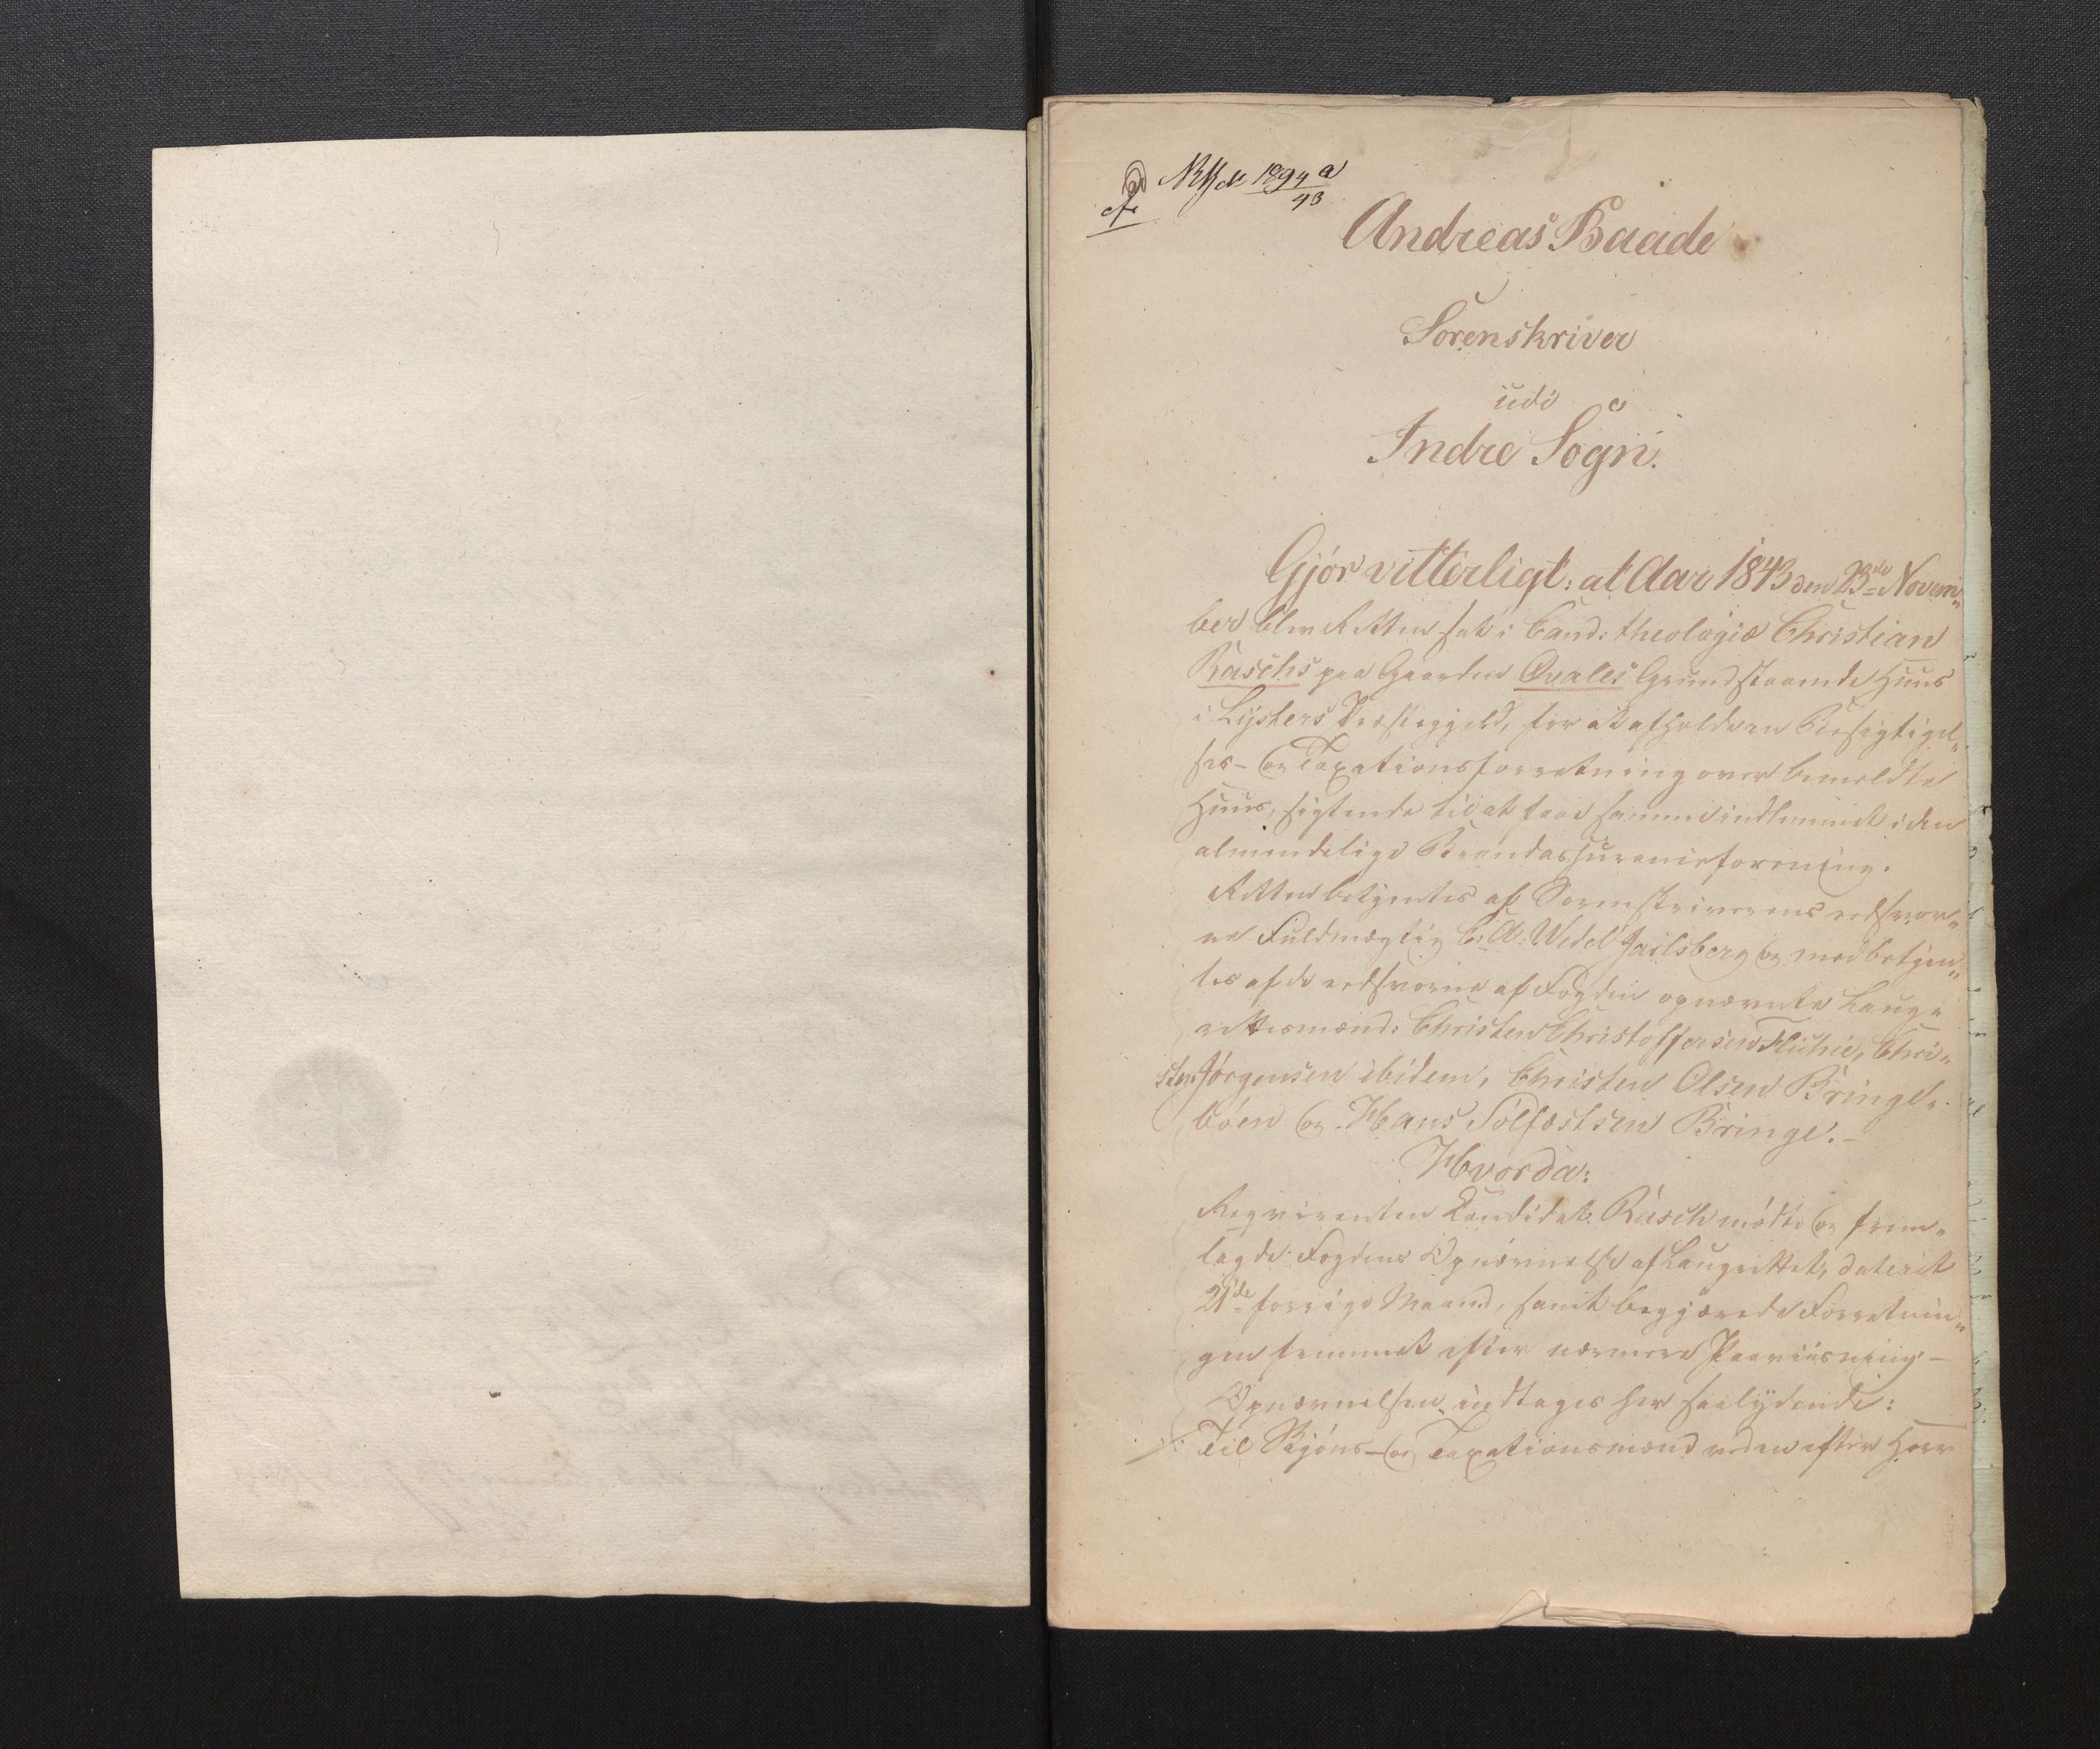 1894 a
43
Andreas Baade
Sorenskriver
udi
Indre Sogn.
Gjør vitterligt: at Aar 1843 den 23de Novem„
ber blev Retten sat i Cand: theologiæ Christian
Raschs paa Gaarden Qvales Grund staaende Huus
i Lysters Præstegjeld, for at afholde en Besigtigel„
ses- og Taxationsforretning over bemeldte
Huus, sigtende til at faae samme indlemmet i den
almindelige Brandassuranceforening.
Retten betjentes af Sorenskriverens eedsvor„
ne Fuldmægtig C: A: Wedel Jarlsberg og medbetjen„
tes af de eedsvorne af Fogden opnævnte Laug„
rettesmænd: Christen Christoffersen Fluhie, Chri„
sten Jørgensen ibidem, Christen Olsen Bringe„
bøen og Hans Solfæstsen Bringe.-
Hvorda:
Reqvirenten Candidat Rasch mødte og frem„
lagde Fogdens Opnævnelse af Laugrettet, dateret
21de forrige Maaned, samt begjærede Forretnin„
gen fremmet efter nærmere Paaviisning-
Opnævnelsen indtages her saalydende:
Til Skjøns- og Taxationsmænd ved en efter Herr